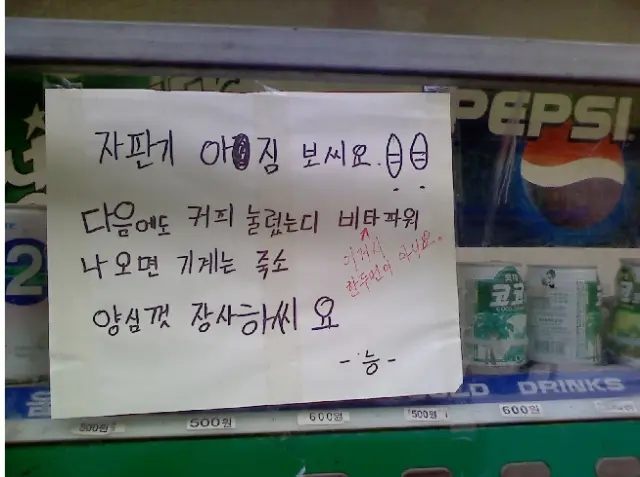 자판기 아짐 보씨요.!!
다음에도 커피 눌렀는디 비타파워
이것시
한두번이 아니요.
나오면 기계는 죽소
양심껏 장사하씨요
-능-
PEPSI
2
코코
COLD DRINKS
500원
500원
600원
500원
600원